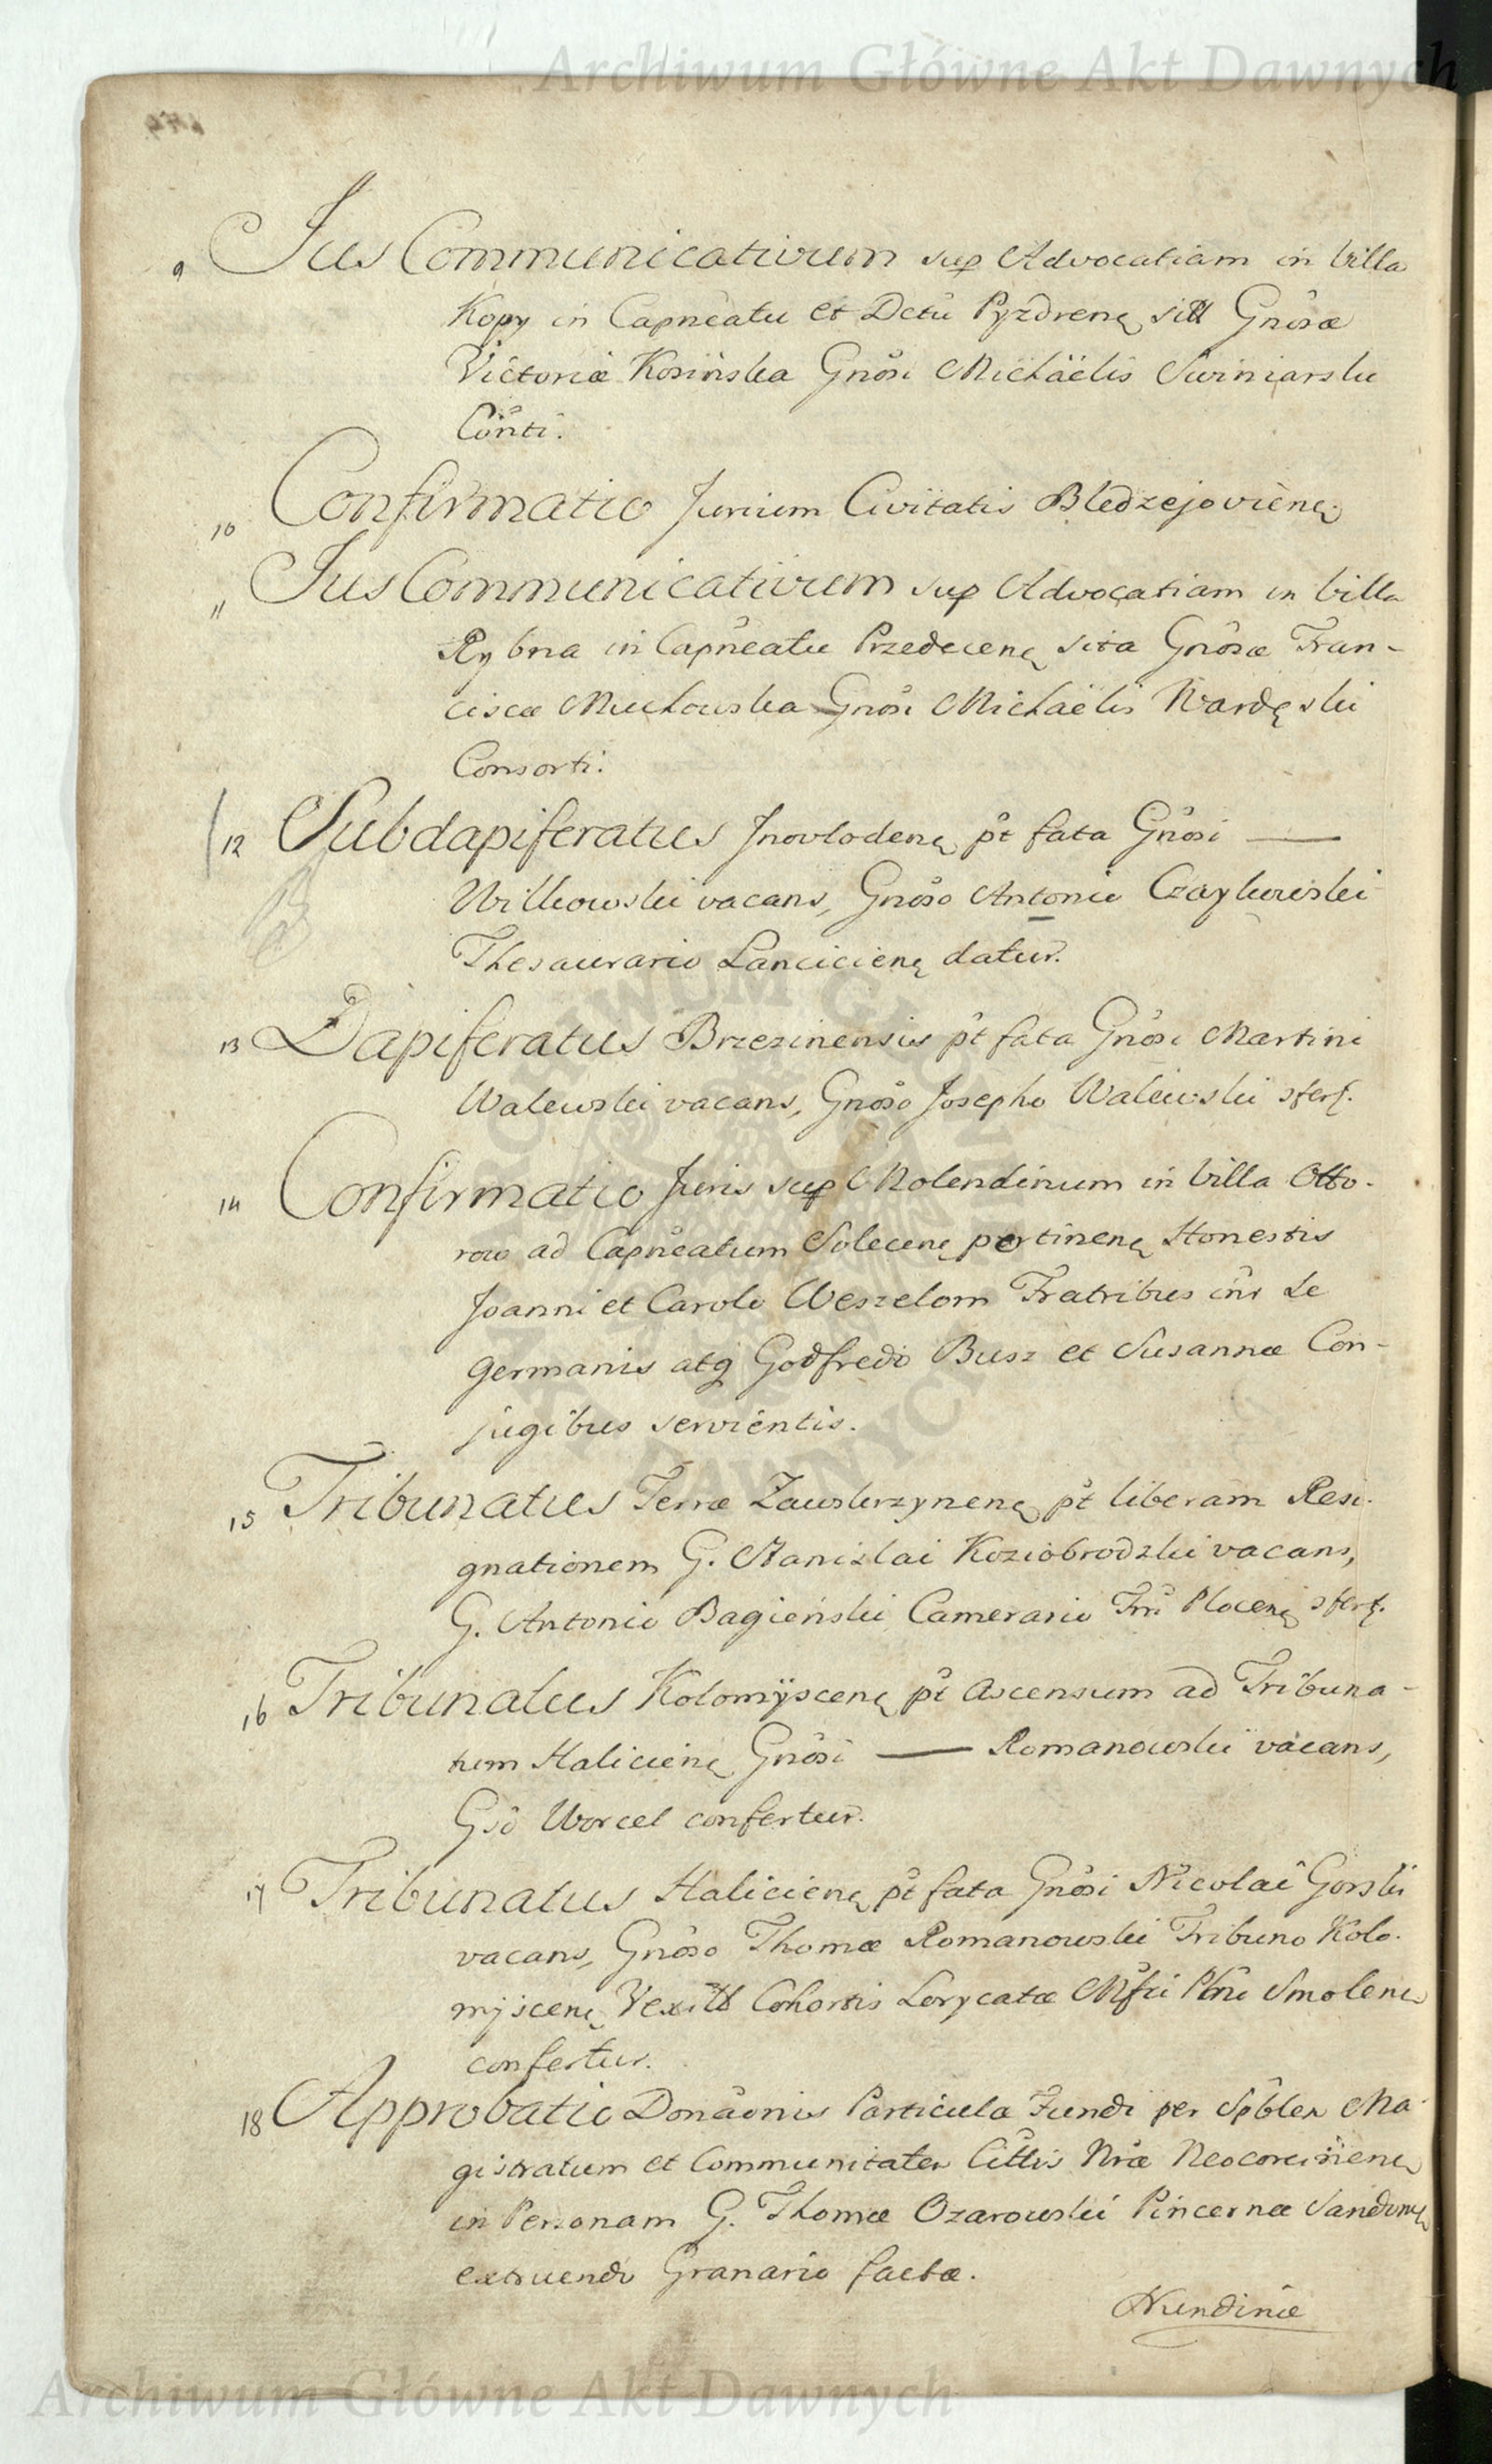 Archiwum Główne Akt Dawnych
9 Jus Communicativum sup Advocatiam in Villa
Kopy in Capneatu et Dctu Pyzdrenę sitt Gnosæ
Victoriæ Kosińska Gnosi Michaëlis Swiniarski
Conti.
10 Confirmatio Jurium Civitatis Blędzejovienę.
11 Jus Communicativum sup Advocatiam in Villa
Rybna in Capneatu Przedecenę sita Gnosæ Fran-
ciscæ Muchowska Gnosi Michaëlis Wardęski
Consorti.
12 Subdapiferatus Jnovlodenę pt fata Gnosi —
Wilkowski vacans, Gnoso Antonio Czaykowski
Thesaurario Lancicienę datur.
13 Dapiferatus Brzezinensis pt fata Gnosi Martini
Walewski vacans, Gnoso Josepho Walewski sfert.
14 Confirmatio Juris sup Molendinum in Villa Otto-
row ad Capneatum Solecenę pertinenę Honestis
Joanni et Carolo Weszelom Fratribus inr Se
germanis atq Godfredo Busz et Susannæ Con-
jugibus servientis.
15 Tribunatus Terræ Zawskrzynenę pt liberam Resi-
gnationem G. Stanislai Koziobrodzki vacans,
G. Antonio Bagieński Camerario Trri Plocenę sfert.
16 Tribunatus Kolomÿscenę pt Ascensum ad Tribuna-
tum Halicienę Gnosi — Romanowski vacans,
Gso Worcel confertur.
17 Tribunatus Halicienę pt fata Gnosi Nicolai Gorski
vacans, Gnoso Thomæ Romanowski Tribuno Kolo-
myscenę Vexill Cohortis Lorycatæ Mfci Plni Smolenę
confertur.
18 Approbatio Donaonis Particula Fundi per Spblem Ma-
gistratum et Communitatem Cittis Nræ Neocorcinenę
in Personam G. Thomæ Ozarowski Pincernæ Sandomę
extruendo Granario factæ.
Nundinæ
Archiwum Główne Akt Dawnych